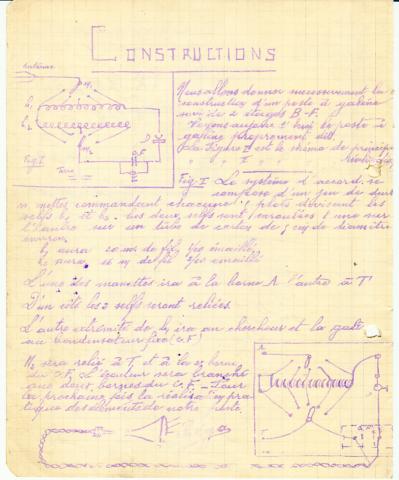 CONSTRUCTIONS
Antenne
Nous allons donner maintenant la
construction d'un poste à galène
suivi de 2 étages B-F.
Voyons ce poste à
galène proprement dit.
La Figure I est le schéma de principe
" " II "
Terre
Fig-I
Fig-I Le système d'accord se
compose d'un jeu de deux
manettes commandant chacune plots divisant les
selfs L1 et L2. Les deux selfs sont enroulées l'une sur
l'autre sur un tube de carton de 7 cm de diamètre
environ.
L1 aura 20 m de fil 4/10 émaillé,
L2 aura 16 m de fil 4/10 émaillé
L'une des manettes ira à la borne A l'autre à T
D'un côté les 2 selfs seront reliées.
L'autre extrémité de L1 ira au chercheur et la galène
au condensateur fixe (C.F)
M2 sera relié à T et à la 2e borne
du C.F. L'écouteur sera branché
aux deux bornes du C.F. - Pour
la prochaine fois la réalisation pra-
tique des éléments de notre poste.